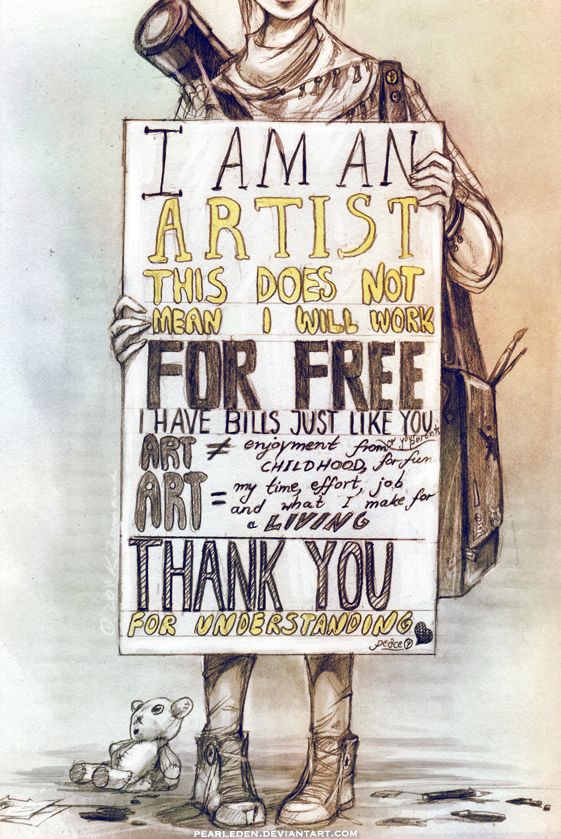 I AM AN
ARTIST
THIS DOES NOT
MEAN I WILL WORK
FOR FREE
I HAVE BILLS JUST LIKE YOU
or your parents
ART ≠ enjoyment from
CHILDHOOD, for fun
ART = my time, effort, job
and what I make for
a LIVING
THANK YOU
FOR UNDERSTANDING
peace
PEARLEDEN.DEVIANTART.COM